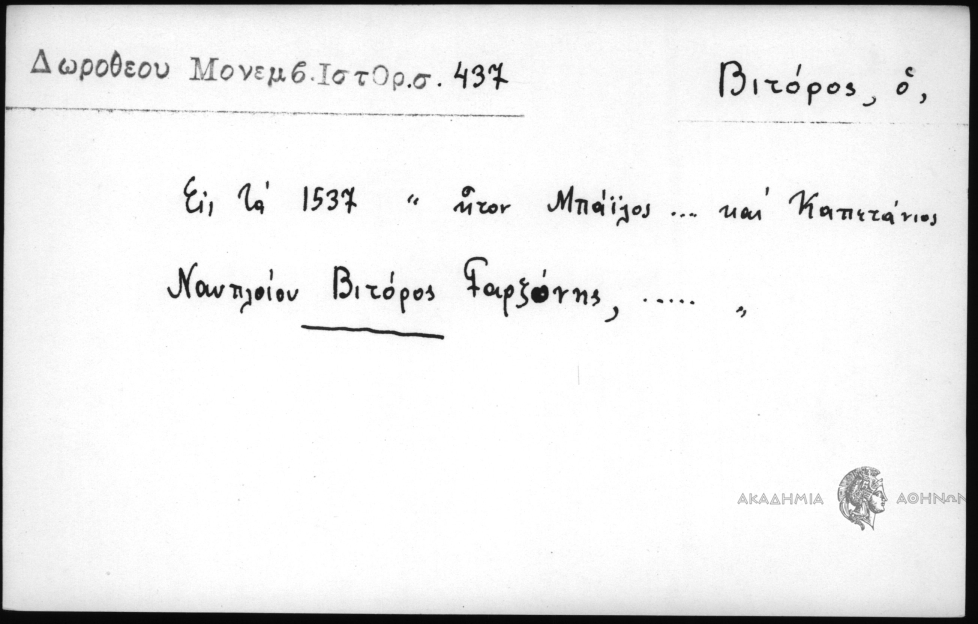 Δωροθεου Μονεμβ.Ιστορ.σ. 437
Βιτόρος, ὁ,
Εἰς τὰ 1537 " ἦτον Μπάϊλος ... καὶ Καπετάνιος
Ναυπλοίου Βιτόρος Γαρζόνης, ..... "
ΑΚΑΔΗΜΙΑ ΑΘΗΝΩΝ